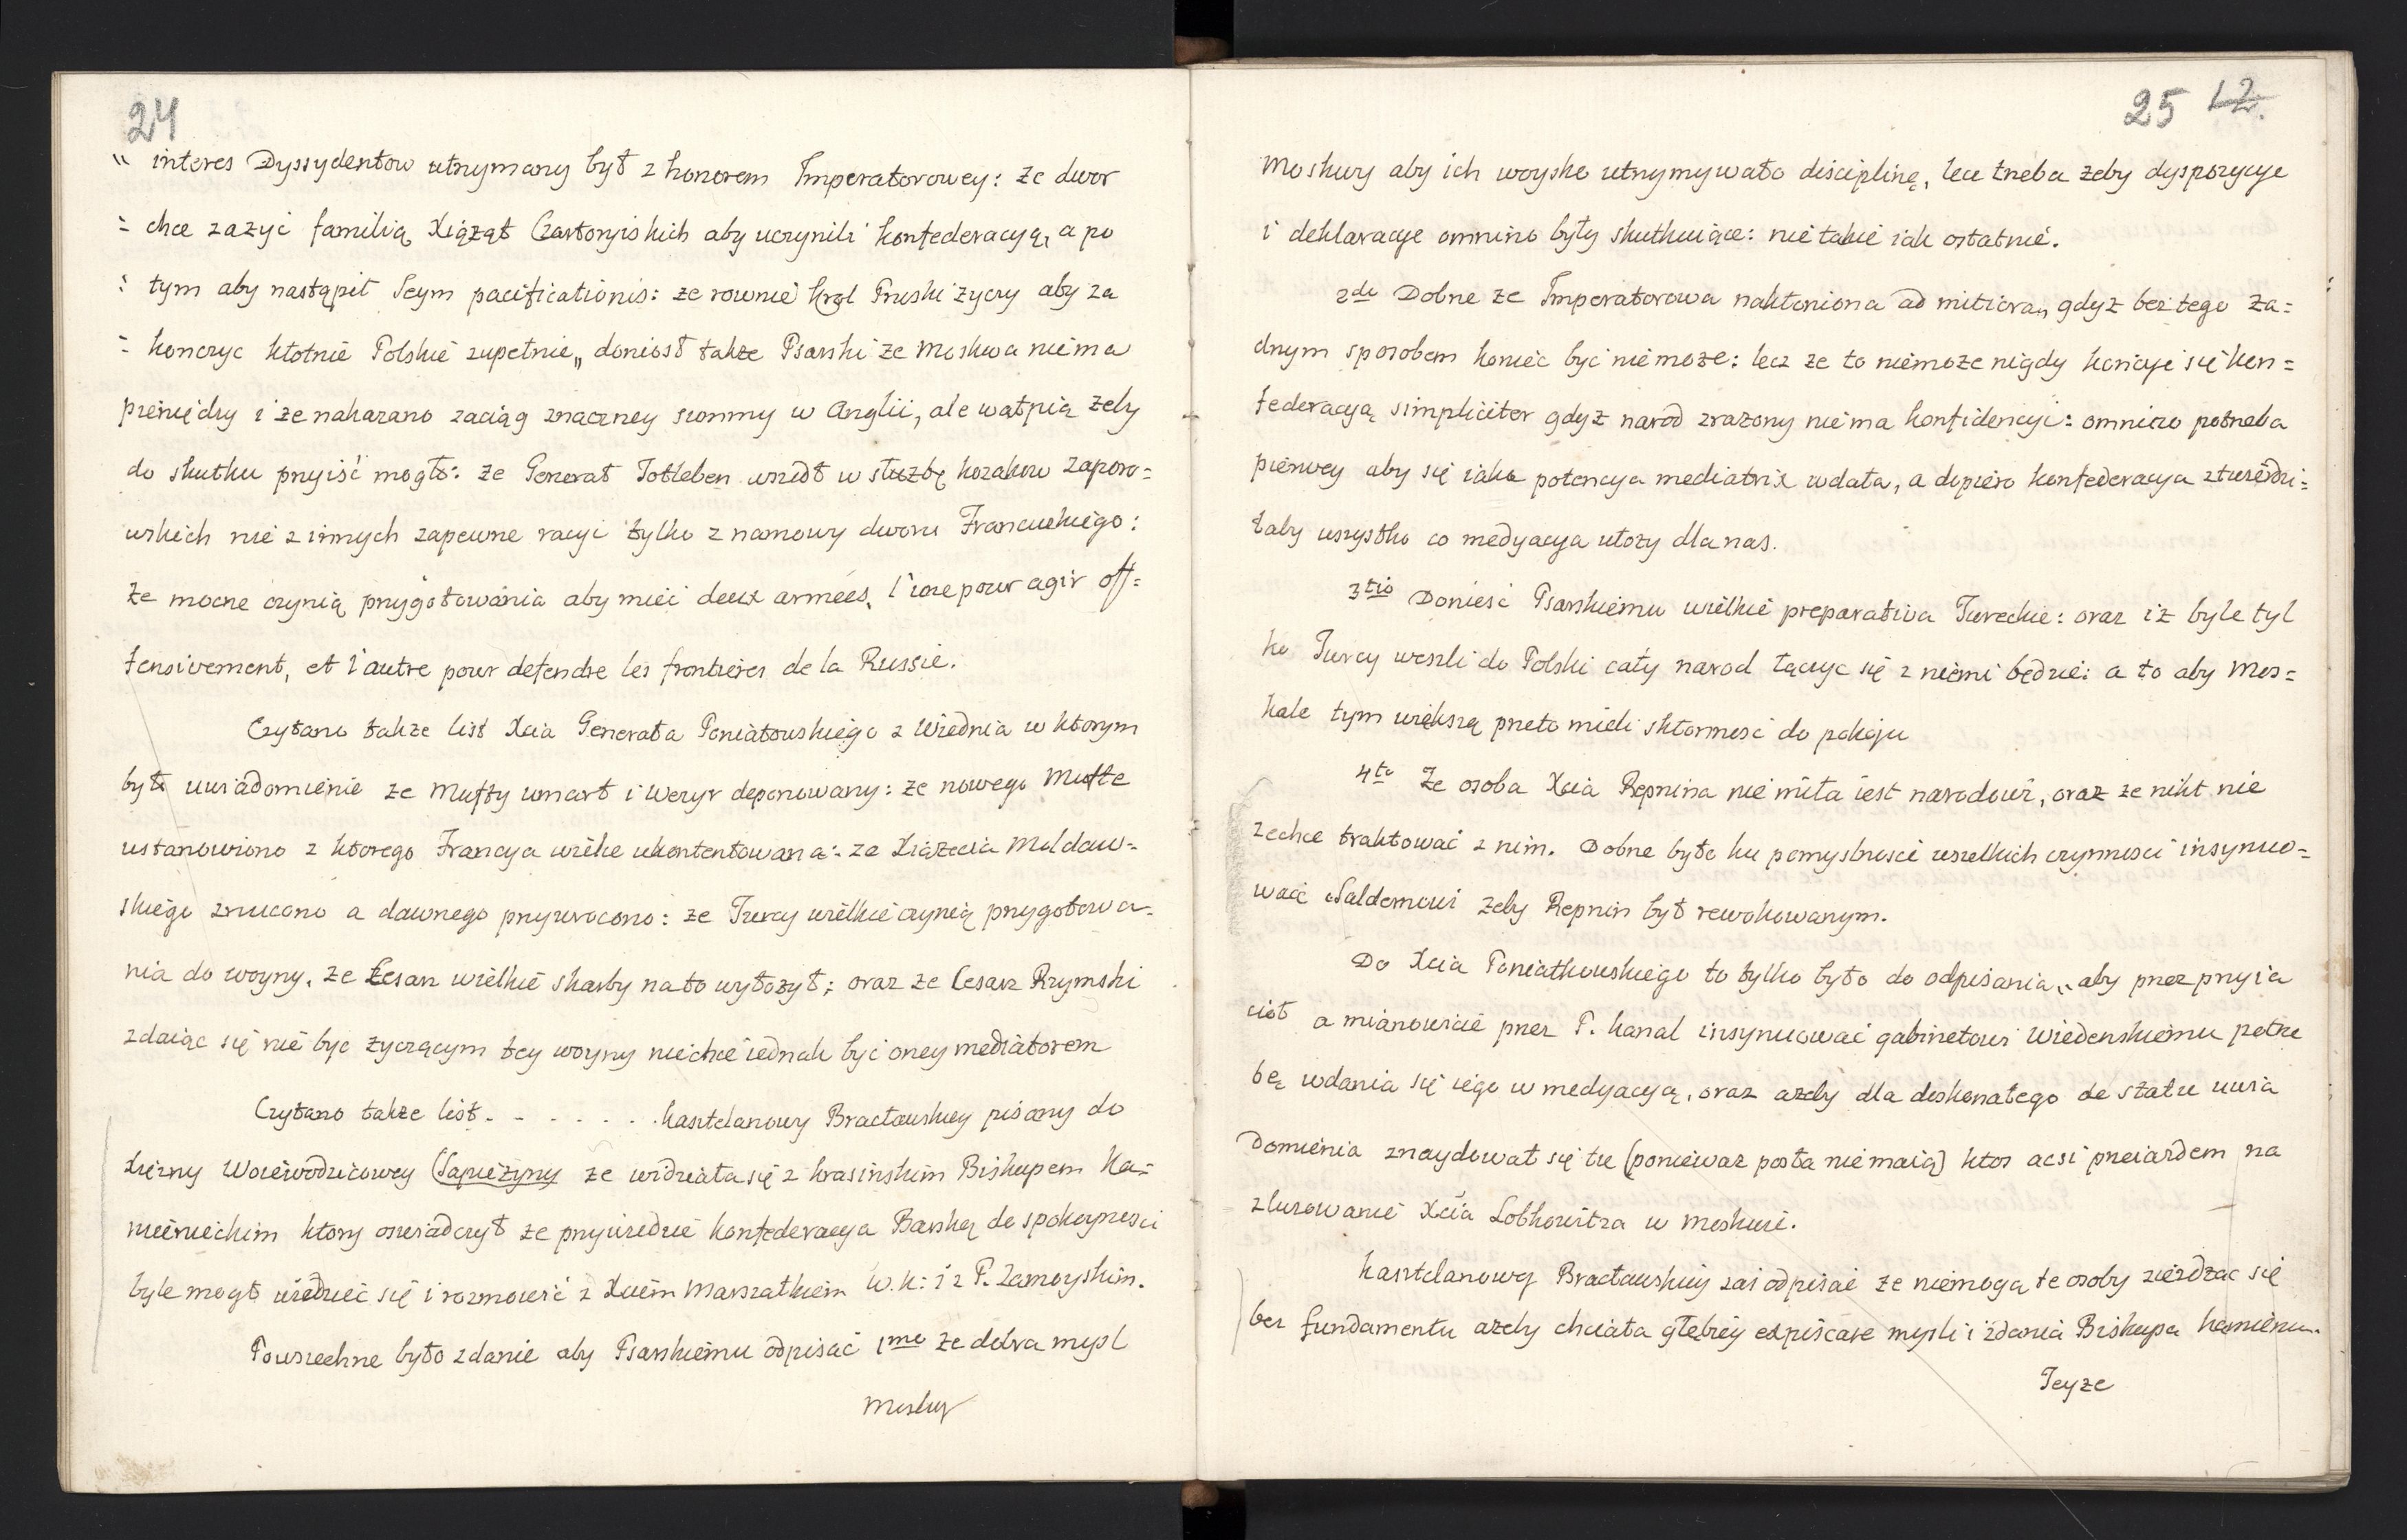 24
" interes Dyssydentow utrzymany był z honorem Imperatorowey: że dwor
= chce zażyć familią Xiążąt Czartoryiskich aby uczynili konfederacyą, a po
= tym aby nastąpił Seym pacificationis: że rownie krol Pruski życzy aby za
= konczyć kłotnie Polskie zupełnie„ doniosł także Psarski że Moskwa niema
pieniędzy i że nakazano zaciąg znaczney summy w Anglii, ale wątpią żeby
do skutku przyiść mogło: że Generał Totleben wszedł w służbę kozakow Zaporo=
wskich nie z innych zapewne racyi tylko z namowy dworu Francuskiego:
że mocne czynią przygotowania aby mieć deux armées, l'une pour agir off=
fensivement, et l'autre pour defendre les frontieres de la Russie.
Czytano także list Xcia Generała Poniatowskiego z Wiednia w ktorym
było uwiadomienie że Muffty umarł i Wezyr deponowany: że nowego Muffte
ustanowiono z ktorego Francya wielce ukontentowana: że Xiążęcia Moldaw=
skiego zrzucono a dawnego przywrocono: że Turcy wielkie czynią przygotowa=
nia do woyny, że Cesarz wielkie skarby na to wyłożył; oraz że Cesarz Rzymski
zdaiąc się nie być życzącym tey woyny niechce iednak być oney mediatorem
Czytano także list . - - . - . . . kasztelanowy Bracławskiey pisany do
Xiężny Woiewodzicowey (Sapieżyny że widziała się z krasińskim Biskupem Ka=
mienieckim ktory oswiadczył że przywiedzie konfederacya Barską do spokoyności
byle mogł widzieć się i rozmowić z Xciem Marszałkiem W. k: i z P. Zamoyskim.
Powszechne było zdanie aby Psarskiemu odpisać 1mo że dobra mysl
Moskwy
25 12.
Moskwy aby ich woysko utrzymywało disciplinę, lecz trzeba żeby dyspozycye
i deklaracye omnino były skutkuiące: nie takie iak ostatnie.
2do Dobrze że Imperatorowa nakłoniona ad mitiora„ gdyż bez tego ża=
dnym sposobem koniec być niemoże: lecz że to niemoże nigdy kończyć się kon=
federacyą simpliciter gdyż narod zrażony niema konfidencyi: omnino potrzeba
pierwey aby się iaka potencya mediatrix wdała, a dopiero konfederacya ztwierdzi=
łaby wszystko co medyacya ułoży dla nas.
3tio Donieść Psarskiemu wielkie preparativa Tureckie: oraz iż byle tyl
ko Turcy weszli do Polski cały narod łączyć się z niemi będzie: a to aby Mos=
kale tym większą przeto mieli skłonność do pokoju
4to Że osoba Xcia Repnina nie miła iest narodowi, oraz że nikt nie
zechce traktować z nim. Dobrze było ku pomyslności wszelkich czynności insynuo=
wać Saldernowi żeby Repnin był rewokowanym.
Do Xcia Poniatkowskiego to tylko było do odpisania„ aby przez przyia
cioł a mianowicie przez P. kanal insynuować gabinetowi Wiedenskiemu potrze
bę wdania się iego w medyacyą, oraz ażeby dla doskonałego de statu uwia
domienia znaydował się tu (ponieważ posła nie maią) ktos acsi przeiazdem na
zluzowanie Xcia Lobkowitza w Moskwie.
Kasztelanowy Bracławskiey zaś odpisać że niemogą te osoby zieżdżać się
bez fundamentu ażeby chciała głębiey expiscare mysli i zdania Biskupa kamienn.
Teyże